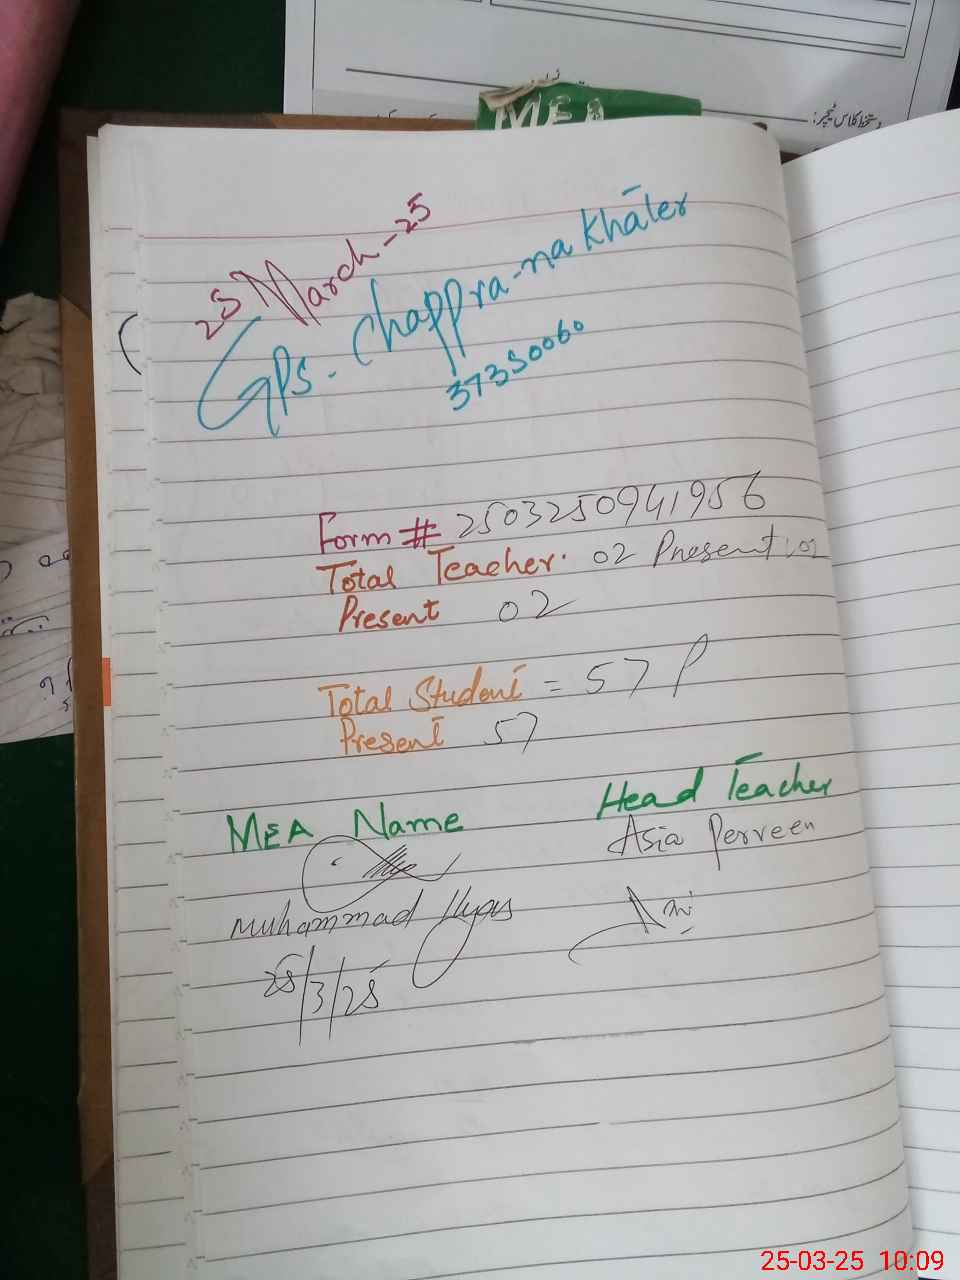 دستخط کلاس ٹیچر:
MEA
25 March-25
GPS. Chappra-na Khater
37350060
Form # 2503250941956
Total Teacher. 02 Present 02
Present 02
Total Student = 57 P
Present 57
MEA Name
Head Teacher
Asia Perveen
Muhammad Ilyas
25/3/25
25-03-25 10:09